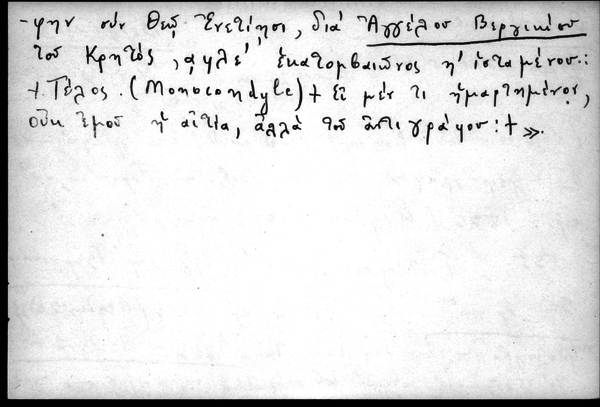 -φην σὺν Θεῷ Ἐνετίησι, διὰ Ἀγγέλου Βεργικίου
τοῦ Κρητός, ͵αφλε′, ἑκατομβαιῶνος η′ ἱσταμένου.:
+ Τέλος. (Monocondyle) + εἰ μέν τι ἡμαρτημένον,
οὐκ ἐμοῦ ἡ αἰτία, ἀλλὰ τοῦ ἀντιγράφου: + ».